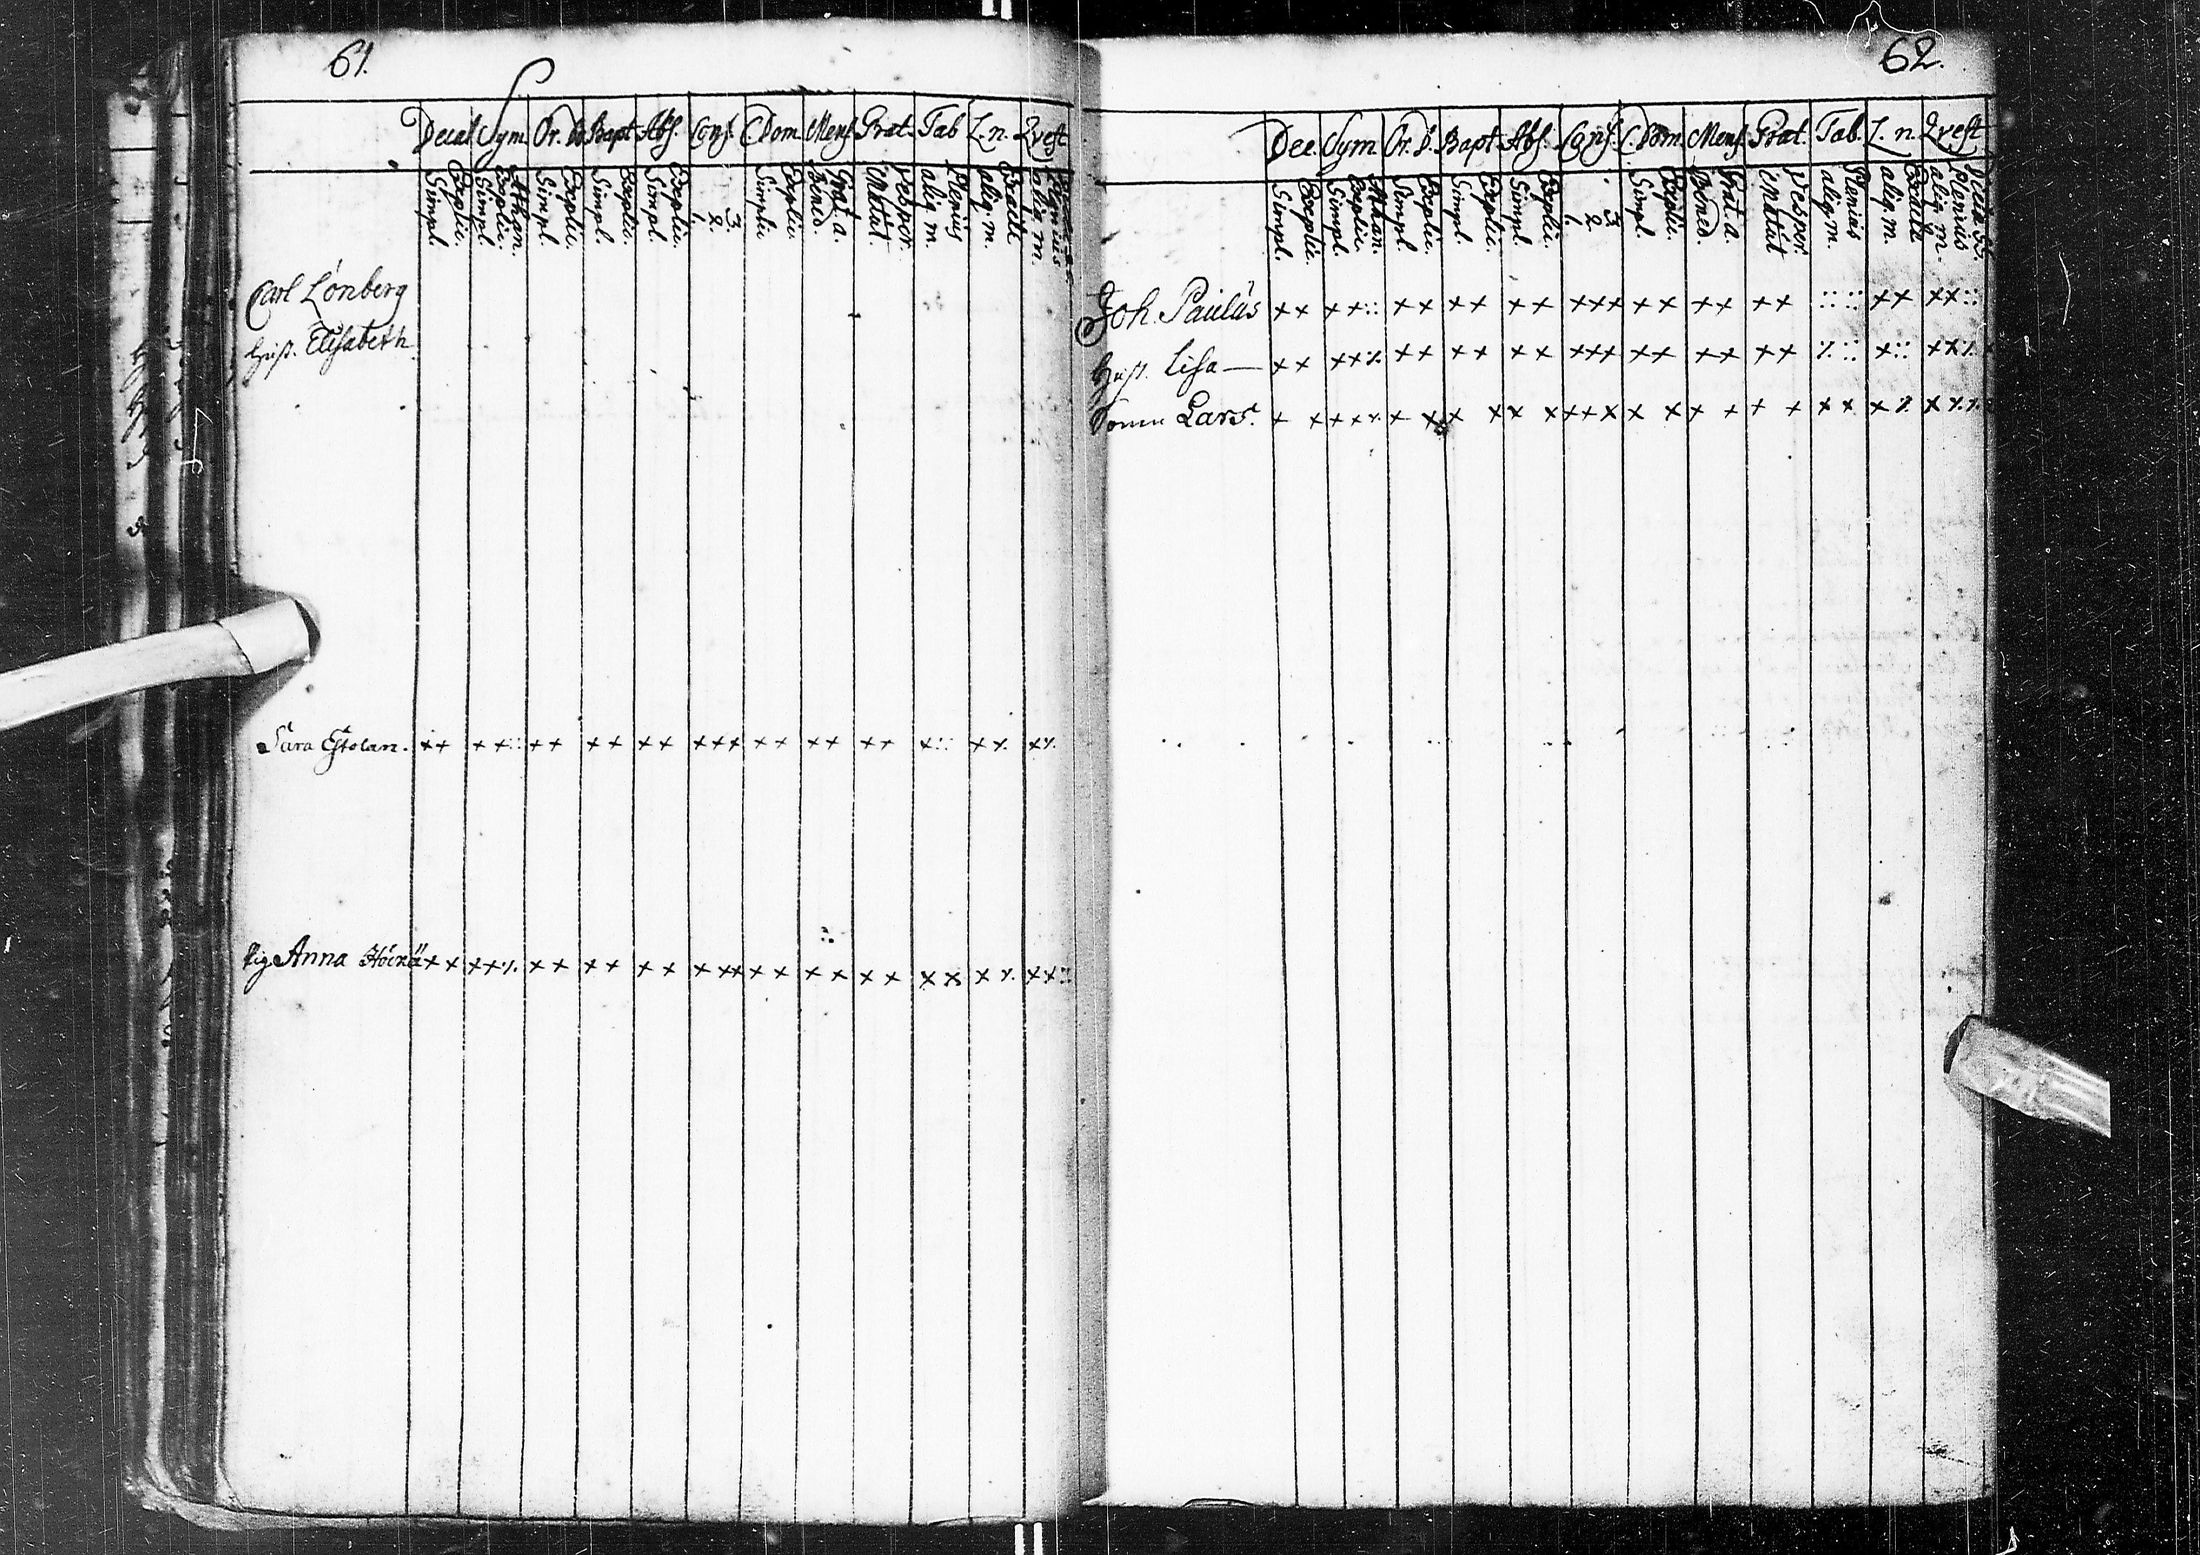 61.
Decal Sym. Or. D. Bapt. Abs. Conf. C. Dom. Mens. Grat. Tab L. n. Qvest
Simpl. Explic. Simpl. Explic. Athan. Simpl. Explic. Simpl. Explic. Simpl. Explic. 1. 2. 3 Simplic Explic. Bened. Grat. a. Matut. Vesper. aliq. m. Plenius aliq. m. Exacte aliq. m. Plenius
Carl Lönberg
Hust. Elisabeth
Sara Estolan. ×× ××:: ×× ×× ×× ××× ×× ×× ×× ×:: ×⁒ ×⁒
Pig Anna ×× ××⁒ ×× ×× ×× ××× ×× ×× ×× ×× ×⁒ ××::
62.
Dec. Sym. Or. D. Bapt. Abs. Conf. C. Dom. Mens. Grat. Tab. L. n. Qvest
Simpl. Explic. Simpl. Explic. Athan. Simpl. Explic. Simpl. Explic. Simpl. Explic. 1. 2 3. Simpl. Explic. Bened. Grat. a. Matut Vesper. aliq. m. Plenius aliq. m. Exacte aliq. m. Plenius
Joh. Paulus ×× ××:: ×× ×× ×× ××× ×× ×× ×× :: :: ×× ××::
Hust. Lisa — ×× ××⁒ ×× ×× ×× ××× ×× ×× ×× ⁒ :: ×:: ××⁒
Sonen Lars. × × × × ⁒ × × × × × × × × × × × × × × × × × × ⁒ × ⁒ ⁒